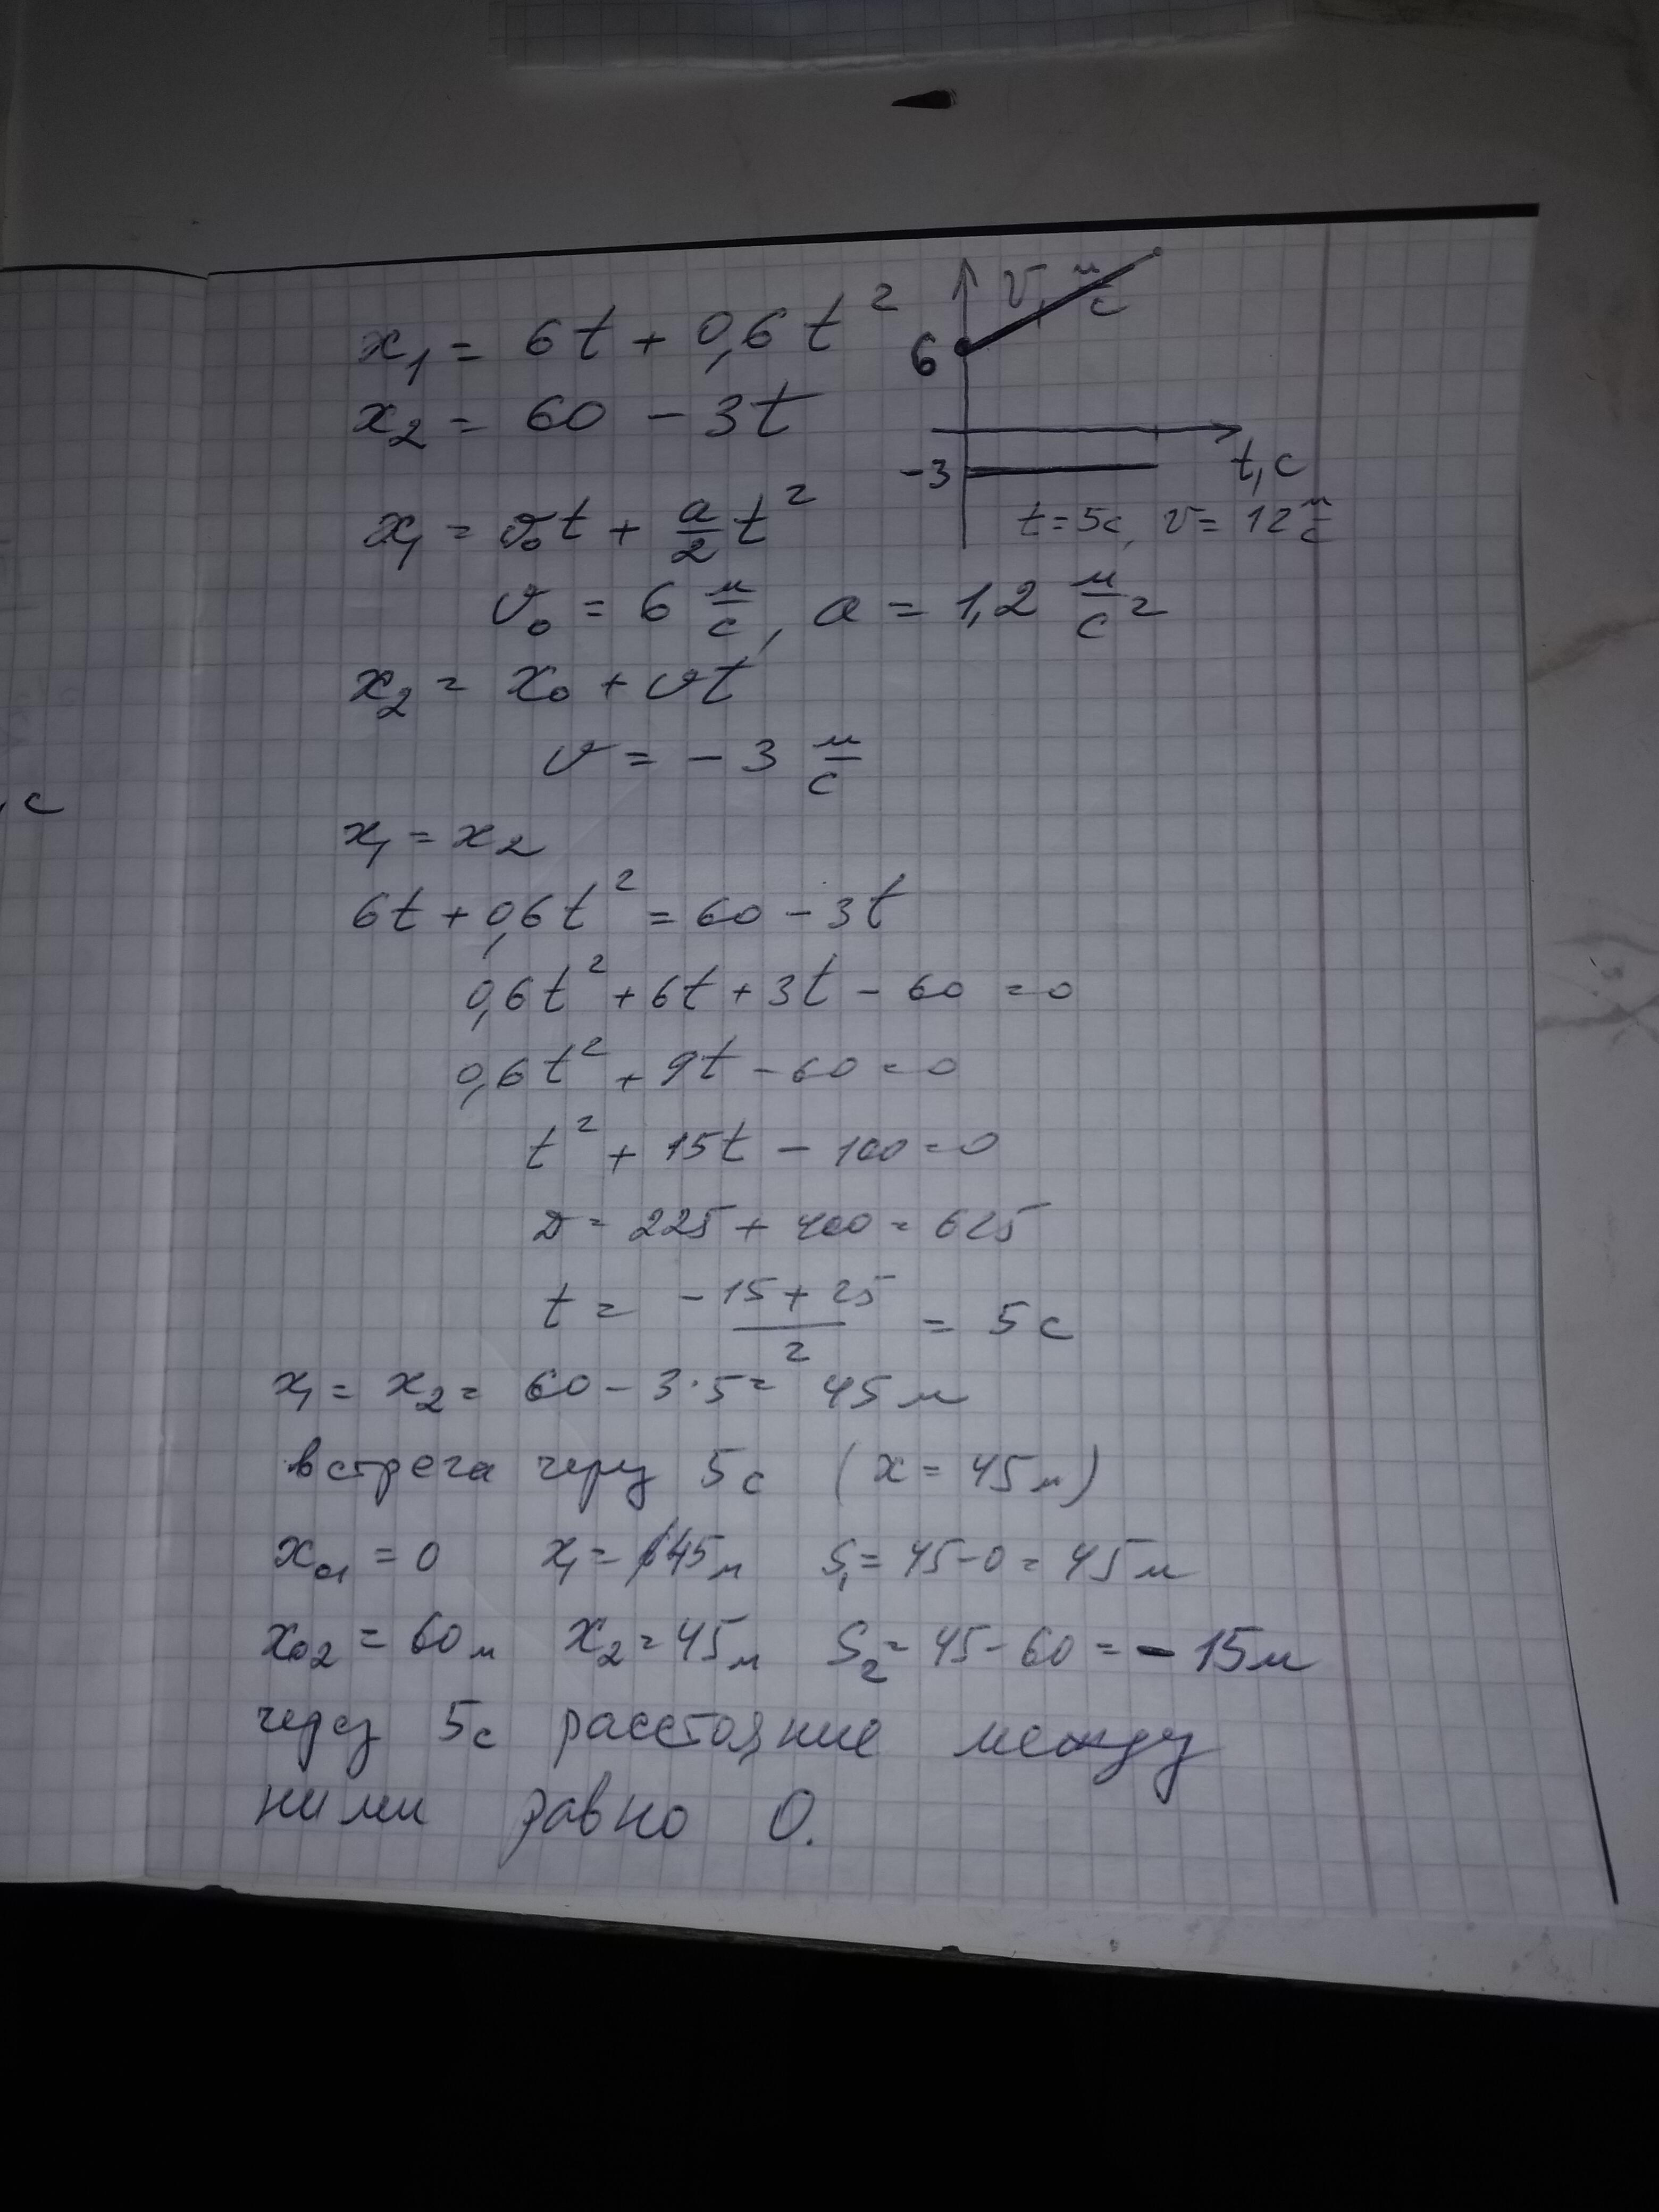 x₁ = 6t + 0,6t²
x₂ = 60 - 3t
v, м/с
6
-3
t, c
t = 5c, v = 12 м/с
x₁ = v₀t + a/2 t²
v₀ = 6 м/с, a = 1,2 м/с²
x₂ = x₀ + vt
v = -3 м/с
, c
x₁ = x₂
6t + 0,6t² = 60 - 3t
0,6t² + 6t + 3t - 60 = 0
0,6t² + 9t - 60 = 0
t² + 15t - 100 = 0
D = 225 + 400 = 625
t = (-15 + 25)/2 = 5c
x₁ = x₂ = 60 - 3·5 = 45 м
встреча через 5c (x = 45 м)
x₀₁ = 0 x₁ = 45 м S₁ = 45 - 0 = 45 м
x₀₂ = 60 м x₂ = 45 м S₂ = 45 - 60 = -15 м
через 5c расстояние между
ними равно 0.